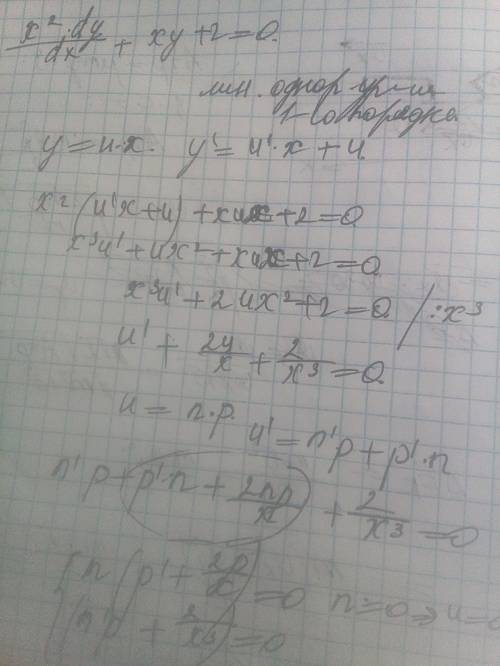 x² dy/dx + xy + 2 = 0.
лин. однор. ур-ие
1-го порядка
y = u·x.  y' = u'·x + u.
x²(u'x + u) + xux + 2 = 0
x³u' + ux² + xux + 2 = 0
x³u' + 2ux² + 2 = 0 / :x³
u' + 2u/x + 2/x³ = 0
u = n·p.  u' = n'p + p'·n
n'p + p'·n + 2np/x + 2/x³ = 0
n(p' + 2p/x) = 0  n=0 ⇒ u=0
n'p + 2/x³ = 0